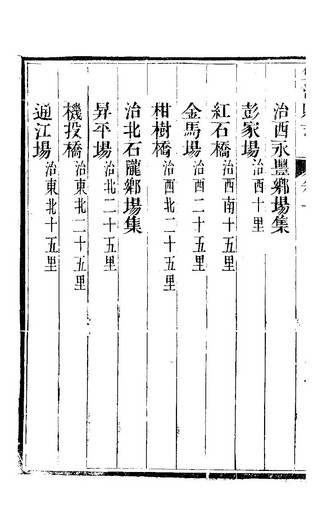 治西永豐鄉場集
彭家場治西十里
紅石橋治西南十五里
金馬場治西二十五里
柑樹橋治西北二十五里
治北石隴鄉場集
昇平場治北二十五里
機投橋治東北二十五里
通江場治東北十五里